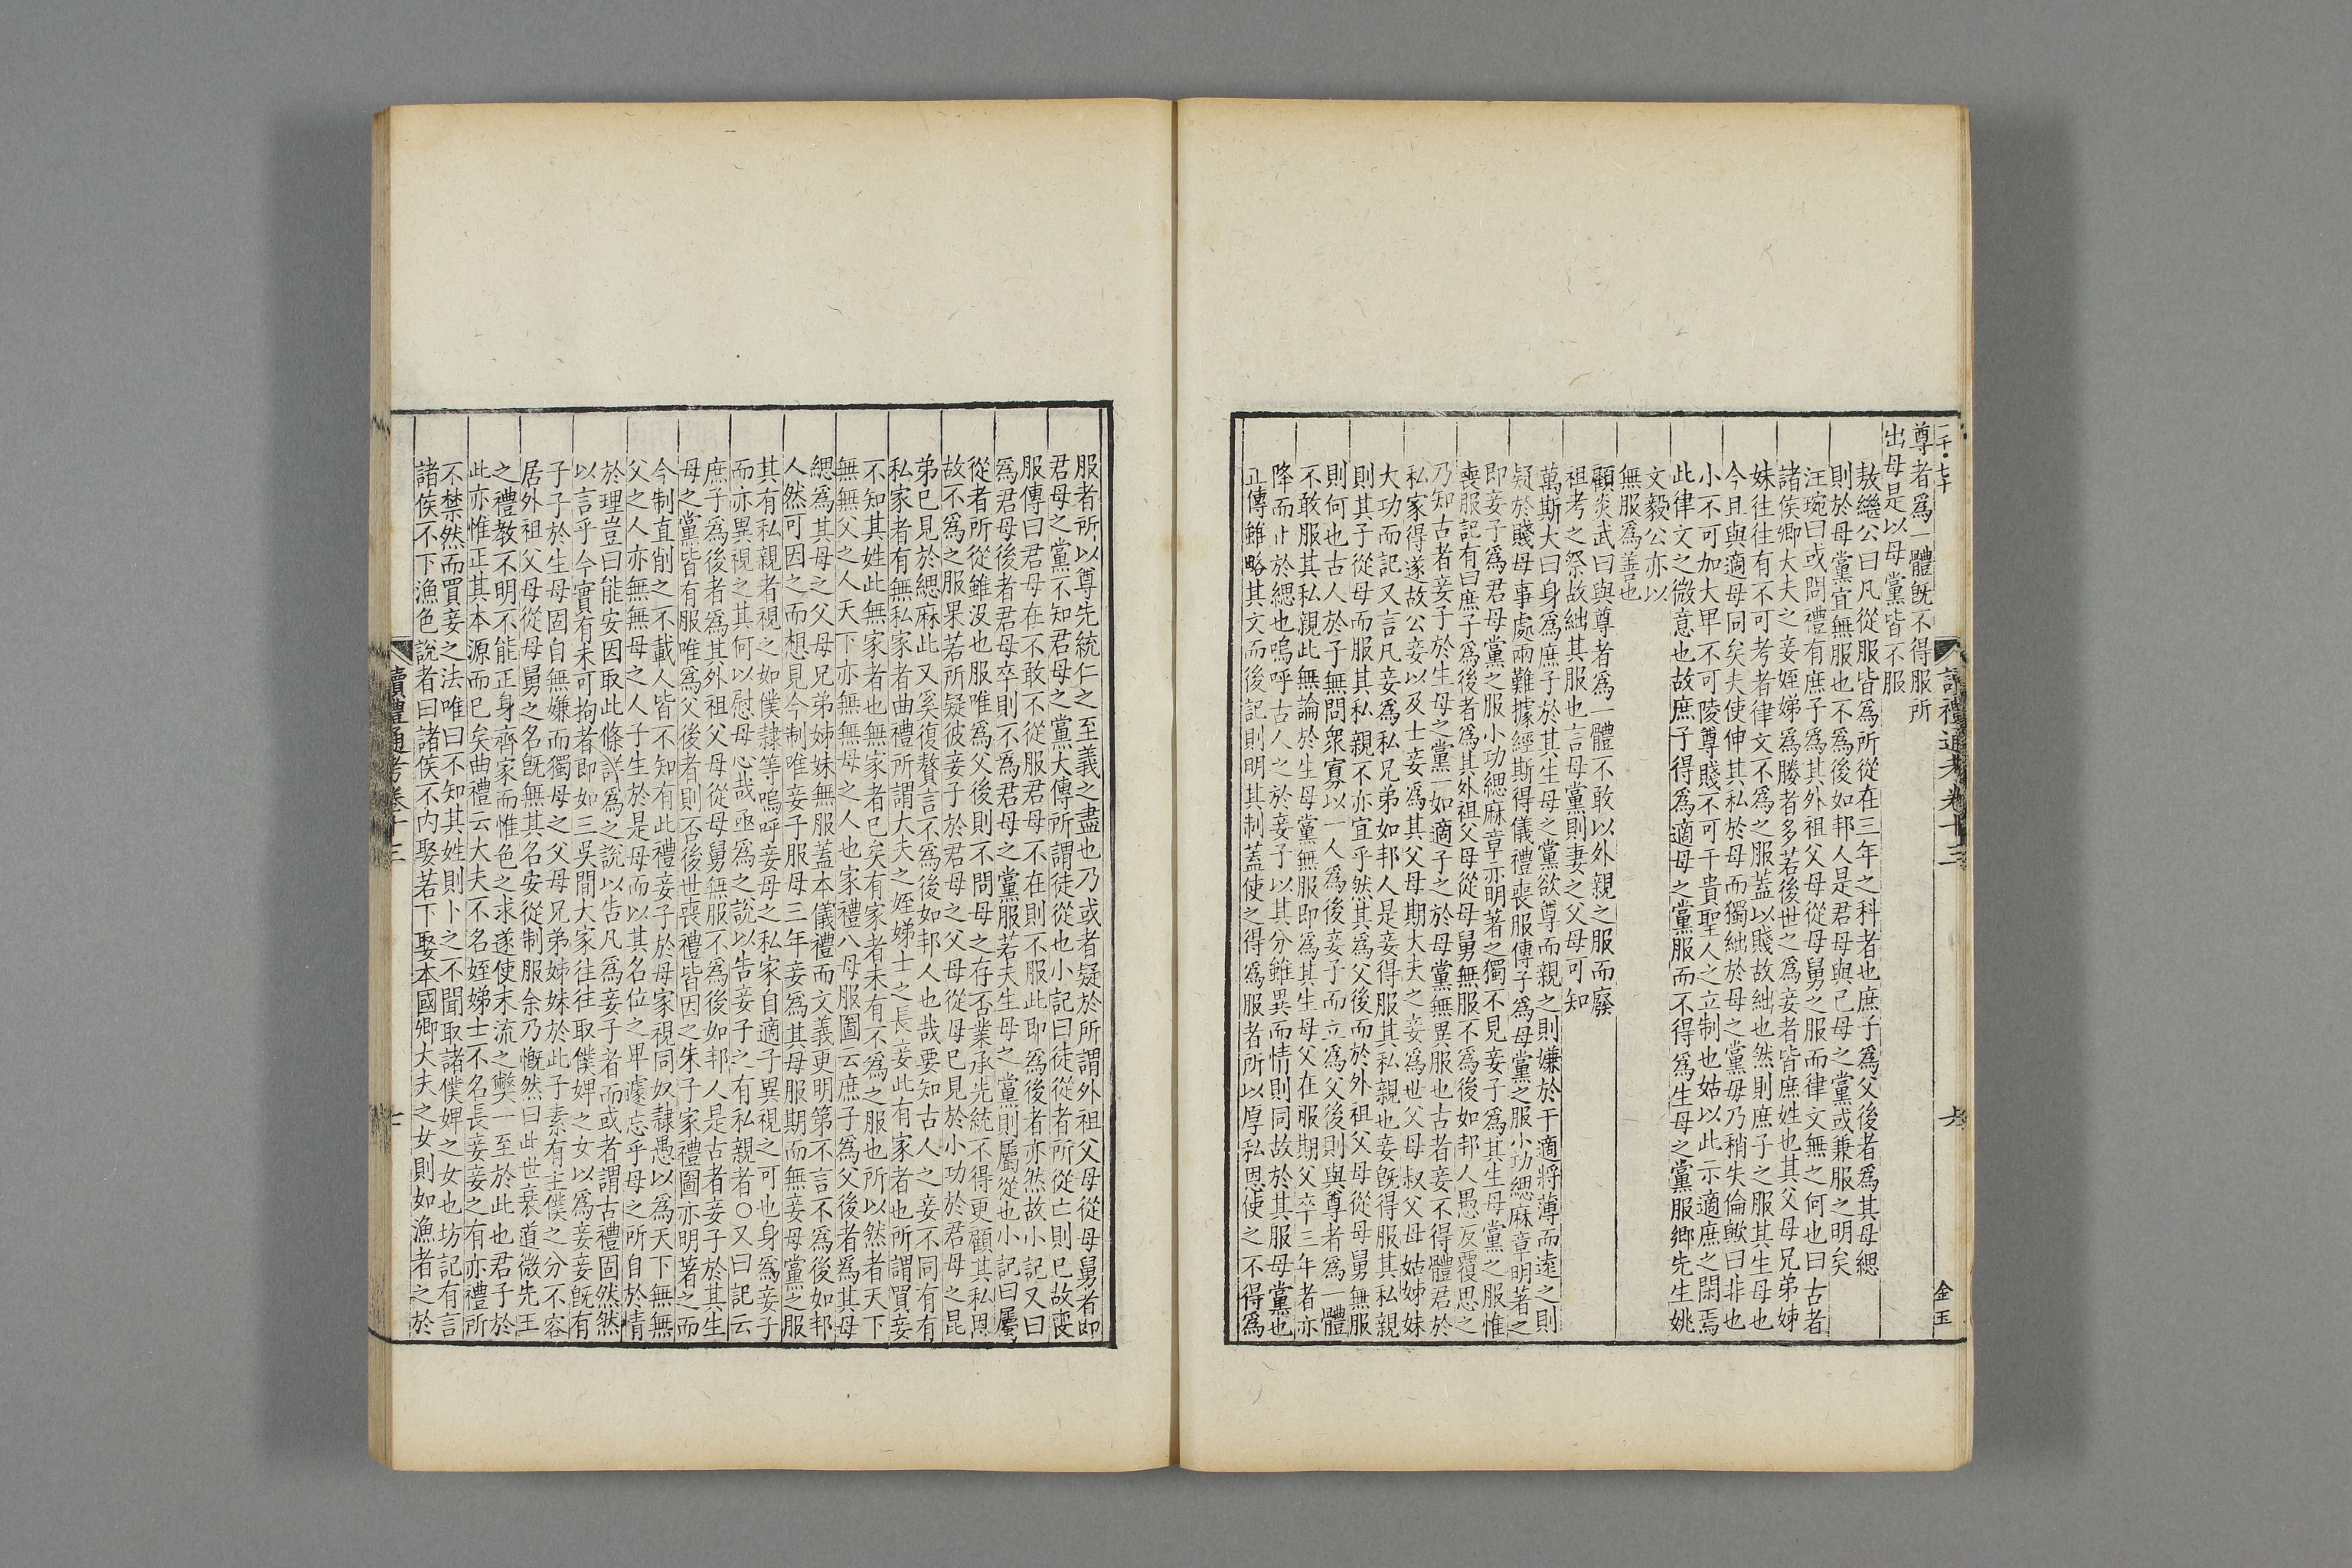 尊者爲一體旣不得服所
出母是以母黨皆不服
敖繼公曰凡從服皆爲所從在三年之科者也庶子爲父後者爲其母緦
則於母黨宜無服也不爲後如邦人是君母與己母之黨或兼服之明矣
汪琬曰或問禮有庶子爲其外祖父母從母舅之服而律文無之何也曰古者
諸侯卿大夫之妾姪娣爲媵者多若後世之爲妾者皆庶姓也其父母兄弟姊
妹往往有不可考者律文不爲之服蓋以賤故絀也然則庶子之服其生母也
今且與適母同矣夫使伸其私於母而獨絀於母之黨毋乃稍失倫歟曰非也
小不可加大卑不可陵尊賤不可干貴聖人之立制也姑以此示適庶之閑焉
此律文之微意也故庶子得爲適母之黨服而不得爲生母之黨服鄉先生姚
文毅公亦以
無服爲善也
顧炎武曰與尊者爲一體不敢以外親之服而廢
祖考之祭故絀其服也言母黨則妻之父母可知
萬斯大曰身爲庶子於其生母之黨欲尊而親之則嫌於干適將薄而遠之則
疑於賤母事處兩難據經斯得儀禮喪服傳子爲母黨之服小功緦麻章明著之
卽妾子爲君母黨之服小功緦麻章亦明著之獨不見妾子爲其生母黨之服惟
喪服記有曰庶子爲後者爲其外祖父母從母舅無服不爲後如邦人愚反覆思之
乃知古者妾子於生母之黨一如適子之於母黨無異服也古者妾不得體君於
私家得遂故公妾以及士妾爲其父母期大夫之妾爲世父母叔父母姑姊妹
大功而記又言凡妾爲私兄弟如邦人是妾得服其私親也妾旣得服其私親
則其子從母而服其私親不亦宜乎然其爲父後而於外祖父母從母舅無服
則何也古人於子無問衆寡以一人爲後妾子而立爲父後則與尊者爲一體
不敢服其私親此無論於生母黨無服卽爲其生母父在服期父卒三年者亦
降而止於緦也嗚呼古人之於妾子以其分雖異而情則同故於其服母黨也
正傳雖略其文而後記則明其制蓋使之得爲服者所以厚私恩使之不得爲
服者所以尊先統仁之至義之盡也乃或者疑於所謂外祖父母從母舅者卽
君母之黨不知君母之黨大傳所謂徒從也小記曰徒從者所從亡則已故喪
服傳曰君母在不敢不從服君母不在則不服此卽爲後者亦然故小記又曰
爲君母後者君母卒則不爲君母之黨服若夫生母之黨則屬從也小記曰屬
從者所從雖沒也服唯爲父後則不問母之存否業承先統不得更顧其私恩
故不爲之服果若所疑彼妾子於君母之父母從母已見於小功於君母之昆
弟已見於緦麻此又奚復贅言不爲後如邦人也哉要知古人之妾不同有有
私家者有無私家者曲禮所謂大夫之姪娣士之長妾此有家者也所謂買妾
不知其姓此無家者也無家者已矣有家者未有不爲之服也所以然者天下
無無父之人天下亦無無母之人也家禮八母服圖云庶子爲父後者爲其母
緦爲其母之父母兄弟姊妹無服蓋本儀禮而文義更明第不言不爲後如邦
人然可因之而想見今制唯妾子服母三年妾爲其母服期而無妾母黨之服
其有私親者視之如僕隸等嗚呼妾母之私家自適子異視之可也身爲妾子
而亦異視之其何以慰母心哉亟爲之說以告妾子之有私親者○又曰記云
庶子爲後者爲其外祖父母從母舅無服不爲後如邦人是古者妾子於其生
母之黨皆有服唯爲父後者則否後世喪禮皆因之朱子家禮圖亦明著之而
今制直削之不載人皆不知有此禮妾子於母家視同奴隸愚以爲天下無無
父之人亦無無母之人子生於是母而以其名位之卑遽忘乎母之所自於情
於理豈曰能安因取此條詳爲之說以告凡爲妾子者而或者謂古禮固然然
以言乎今實有未可拘者卽如三吳間大家往往取僕婢之女以爲妾妾旣有
子子於生母固自無嫌而獨母之父母兄弟姊妹於此子素有主僕之分不容
居外祖父母從母舅之名旣無其名安從制服余乃慨然曰此世衰道微先王
之禮教不明不能正身齊家而惟色之求遂使末流之弊一至於此也君子於
此亦惟正其本源而已矣曲禮云大夫不名姪娣士不名長妾妾之有亦禮所
不禁然而買妾之法唯曰不知其姓則卜之不聞取諸僕婢之女也坊記有言
諸侯不下漁色說者曰諸侯不內娶若下娶本國卿大夫之女則如漁者之於
讀禮通考卷十三